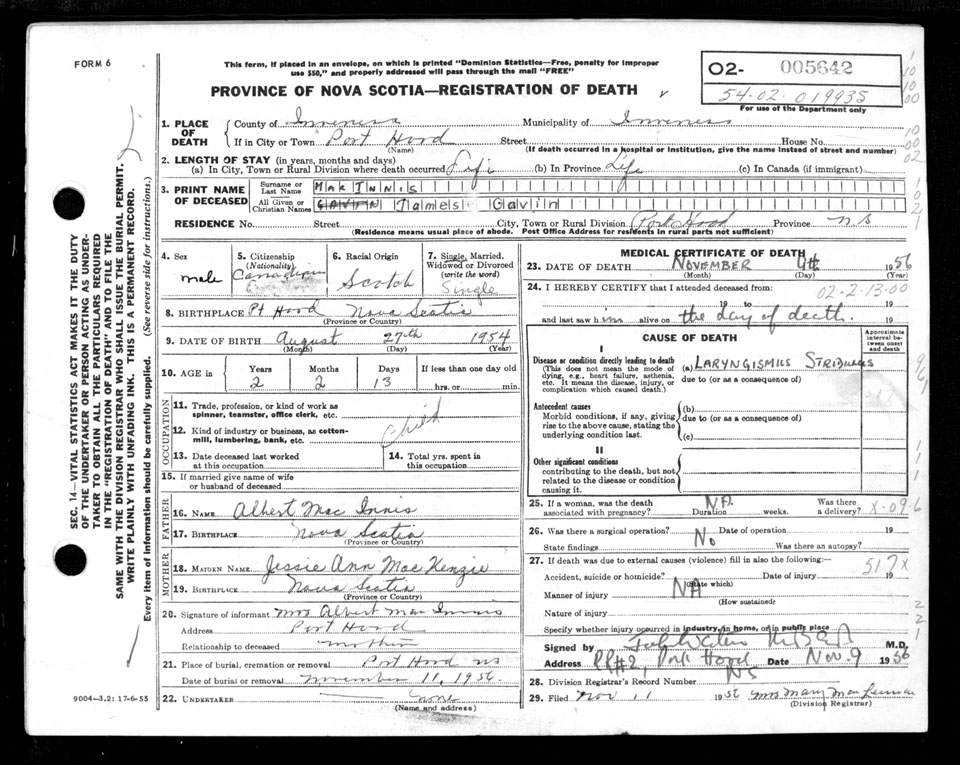 FORM 6
This form, if placed in an envelope, on which is printed "Dominion Statistics—Free, penalty for improper
use $50," and properly addressed will pass through the mail "FREE"
02- 005642
54-02-019935
For use of the Department only
PROVINCE OF NOVA SCOTIA—REGISTRATION OF DEATH
1. PLACE OF DEATH
County of Inverness Municipality of Inverness
If in City or Town Port Hood Street House No.
(Name) (If death occurred in a hospital or institution, give the name instead of street and number)
2. LENGTH OF STAY (in years, months and days)
(a) In City, Town or Rural Division where death occurred Life (b) In Province Life (c) In Canada (if immigrant)
3. PRINT NAME OF DECEASED
Surname or Last Name MacInnis
All Given or Christian Names GAVIN James Gavin
RESIDENCE No. Street City, Town or Rural Division Port Hood Province N S
(Residence means usual place of abode. Post Office Address for residents in rural parts not sufficient)
4. Sex
male
5. Citizenship
(Nationality)
Canadian
6. Racial Origin
Scotch
7. Single, Married,
Widowed or Divorced
(write the word)
Single
8. BIRTHPLACE Pt Hood Nova Scotia
(Province or Country)
9. DATE OF BIRTH August 27th 1954
(Month) (Day) (Year)
10. AGE in
Years Months Days If less than one day old
2 2 13 hrs. or min.
OCCUPATION
11. Trade, profession, or kind of work as
spinner, teamster, office clerk, etc.
12. Kind of industry or business, as cotton-
mill, lumbering, bank, etc.
Child
13. Date deceased last worked
at this occupation
14. Total yrs. spent in
this occupation
15. If married give name of wife
or husband of deceased
FATHER
16. NAME Albert Mac Innis
17. BIRTHPLACE Nova Scotia
(Province or Country)
MOTHER
18. MAIDEN NAME Jessie Ann Mac Kenzie
19. BIRTHPLACE Nova Scotia
(Province or Country)
20. Signature of informant Mrs Albert Mac Innis
Address Port Hood
Relationship to deceased mother
21. Place of burial, cremation or removal Port Hood NS
Date of burial or removal November 11, 1956.
22. UNDERTAKER none
(Name and Address)
MEDICAL CERTIFICATE OF DEATH
23. DATE OF DEATH NOVEMBER 1956
(Month) (Day) (Year)
24. I HEREBY CERTIFY that I attended deceased from:
02-2-13-00
19 to 19
and last saw him alive on the day of death. 19
CAUSE OF DEATH
Approximate
interval between
onset
and death
I
Disease or condition directly leading to death
(This does not mean the mode of
dying, e.g., heart failure, asthenia,
etc. It means the disease, injury, or
complication which caused death.)
(a) LARYNGISMUS STRIDULUS
due to (or as a consequence of)
Antecedent causes
Morbid conditions, if any, giving
rise to the above cause, stating the
underlying condition last.
(b)
due to (or as a consequence of)
(c)
II
Other significant conditions
contributing to the death, but not
related to the disease or condition
causing it.
25. If a woman, was the death
associated with pregnancy? NA. Duration weeks. Was there
a delivery? X-09-6
26. Was there a surgical operation? No Date of operation 19
State findings Was there an autopsy?
27. If death was due to external causes (violence) fill in also the following:
517X
Accident, suicide or homicide? Date of injury 19
(State which)
Manner of injury NA
(How sustained)
Nature of injury
Specify whether injury occurred in industry, in home, or in public place
Signed by M.D.
Address RR#2, Port Hood Date Nov. 9 1956
NS
28. Division Registrar's Record Number
29. Filed Nov 11 1956 Mrs Mary
(Division Registrar)
SEC. 14—VITAL STATISTICS ACT MAKES IT THE DUTY
OF THE UNDERTAKER OR PERSON ACTING AS UNDER-
TAKER TO OBTAIN ALL THE PARTICULARS REQUIRED
IN THE "REGISTRATION OF DEATH" AND TO FILE THE
SAME WITH THE DIVISION REGISTRAR WHO SHALL ISSUE THE BURIAL PERMIT.
WRITE PLAINLY WITH UNFADING INK. THIS IS A PERMANENT RECORD.
Every item of information should be carefully supplied. (See reverse side for instructions.)
9004-3,2: 17-6-55